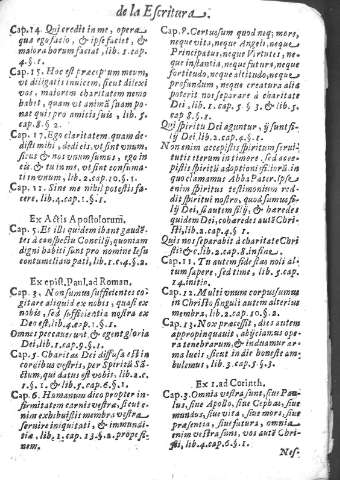 de la Escritura.
Cap. 14. Qui credit in me, opera
quæ ego facio, & ipse faciet, &
maiora horum faciet, lib. 5. cap.
4. §. 1.
Cap. 15. Hoc est præceptum meum,
vt diligatis inuicem, sicut dilexi
vos, maiorem charitatem nemo
habet, quam vt animã suam po
nat quis pro amicis suis, lib. 5.
cap. 8. §. 2.
Cap. 17. Ego claritatem quam de-
disti mihi, dedi eis, vt sint vnum,
sicut & nos vnum sumus, ego in
eis & tu in me, vt sint consuma-
ti in vnum, lib. 2. cap. 10. §. 1.
Cap. Sine me nihil potestis fa-
cere, lib. 4. cap. 1. §. 1.
Ex Actis Apostolorum.
Cap. 5. Et illi quidem ibant gaudẽ-
tes à conspectu Concilij, quoniam
digni habiti sunt pro nomine Iesu
contumeliam pati, lib. 1. c. 4. §. 2.
Ex epist. Paul. ad Roman.
Cap. 3. Non sumus sufficientes co-
gitare aliquid ex nobis, quasi ex
nobis, sed sufficientia nostra ex
Deo est, lib. 4. cap. 1. §. 1.
Omnes peccauerunt, & egent gloria
Dei, lib. 1. cap. 9. §. 1.
Cap. 5. Charitas Dei diffusa est in
cordibus vestris, per Spiritũ Sã-
ctum, qui datus est vobis, lib. 2. c.
1. §. 1. & lib. 5. cap. 6. §. 1.
Cap. 6. Humanum dico propter in-
firmitatem carnis vestræ, sicut e-
nim exhibuistis membra vestra
seruire iniquitati, & immundi-
tiæ, lib. 2. cap. 13. §. 2. prope fi-
nem.
Cap. 8. Certus sum quod neq; mors,
neque vita, neque Angeli, neque
Principatus, neque Virtutes, ne-
que instantia, neque futura, neque
fortitudo, neque altitudo, neque
profundum, neque creatura alia
poterit nos separare à charitate
Dei, lib. 2. cap. 5 §. 3. & lib. 5.
cap. 8. §. 1.
Qui spiritu Dei aguntur, ij sunt fi-
lij Dei lib. 2. cap. 4. §. 1.
Non enim accepistis spiritum serui-
tutis iterum in timore, sed acce-
pistis spiritũ adoptionis filiorũ, in
quo clamamus Abba Pater, ipse e-
nim spiritus testimonium red-
dit spiritui nostro, quod sumus fi-
lij Dei, si autem filij, & hæredes
quidem Dei, cohæredes autẽ Chri-
sti, lib. 2. cap. 4. §. 1.
Quis nos separabit à charitate Chri
sti? &c. lib. 2. cap. 8. in fine.
Cap. 11. Tu autem fide stas noli al-
tum sapere, sed time, lib. 5. cap.
14. initio.
Cap. 12. Multi vnum corpus sumus
in Christo singuli autem alterius
membra, lib. 2. cap. 10. §. 2.
Cap. 13. Nox præcessit, dies autem
appropinquauit, abijciamus ope-
ra tenebrarum, & induamur ar-
ma lucis, sicut in die honeste am-
bulemus, lib. 3. cap. 5 §. 3.
Ex 1. ad Corinth.
Cap. 3. Omnia vestra sunt, siue Pau-
lus, siue Apollo, siue Cephas, siue
mundus, siue vita, siue mors, siue
præsentia, siue futura, omnia
enim vestra sunt, vos autẽ Chri-
sti, lib. 4. cap. 6. §. 1.
Nes-